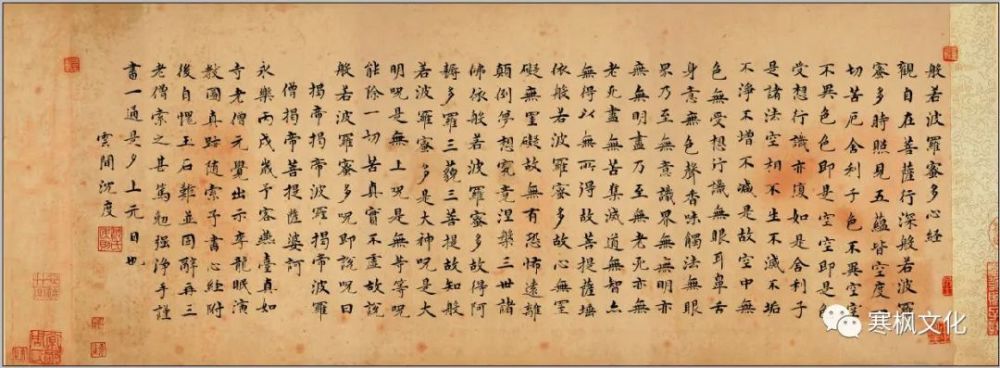 般若波羅蜜多心經
觀自在菩薩行深般若波羅
蜜多時照見五蘊皆空度一
切苦厄舍利子色不異空空
不異色色即是空空即是色
受想行識亦復如是舍利子
是諸法空相不生不滅不垢
不淨不增不減是故空中無
色無受想行識無眼耳鼻舌
身意無色聲香味觸法無眼
界乃至無意識界無無明亦
無無明盡乃至無老死亦無
老死盡無苦集滅道無智亦
無得以無所得故菩提薩埵
依般若波羅蜜多故心無罣
礙無罣礙故無有恐怖遠離
顛倒夢想究竟涅槃三世諸
佛依般若波羅蜜多故得阿
耨多羅三藐三菩提故知般
若波羅蜜多是大神呪是大
明呪是無上呪是無等等呪
能除一切苦真實不虛故說
般若波羅蜜多呪即說呪曰
揭帝揭帝波羅揭帝波羅
僧揭帝菩提薩婆訶
永樂丙戌歲予客燕臺真如
寺老僧元覺出示李龍眠演
教圖真跡隨索予書心經附
後自愧玉石雜並固辭再三
老僧索之甚篤勉強淨手謹
書一通是夕上元日也
雲間沈度
寒枫文化